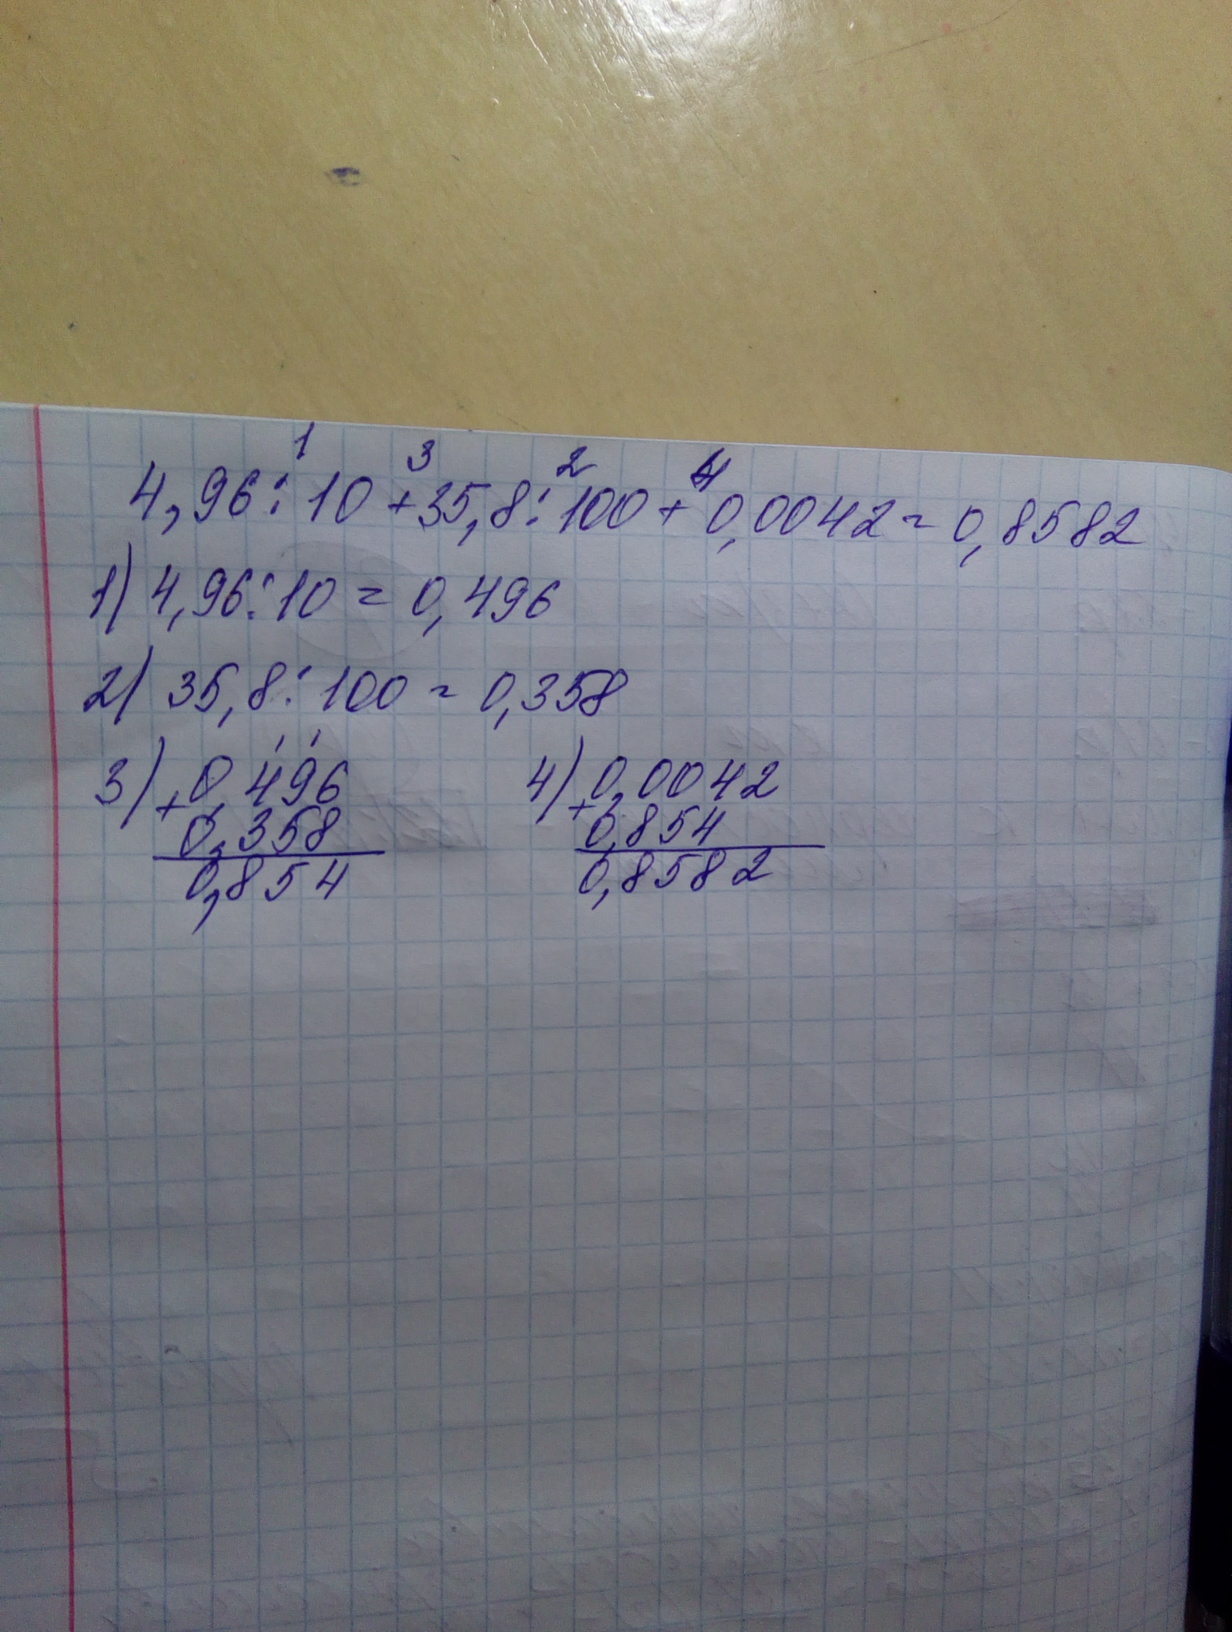 1 3 2 4
4,96:10+35,8:100+0,0042=0,8582
1) 4,96:10=0,496
2) 35,8:100=0,358
3) + 0,496 4) + 0,0042
0,358 0,854
0,854 0,8582